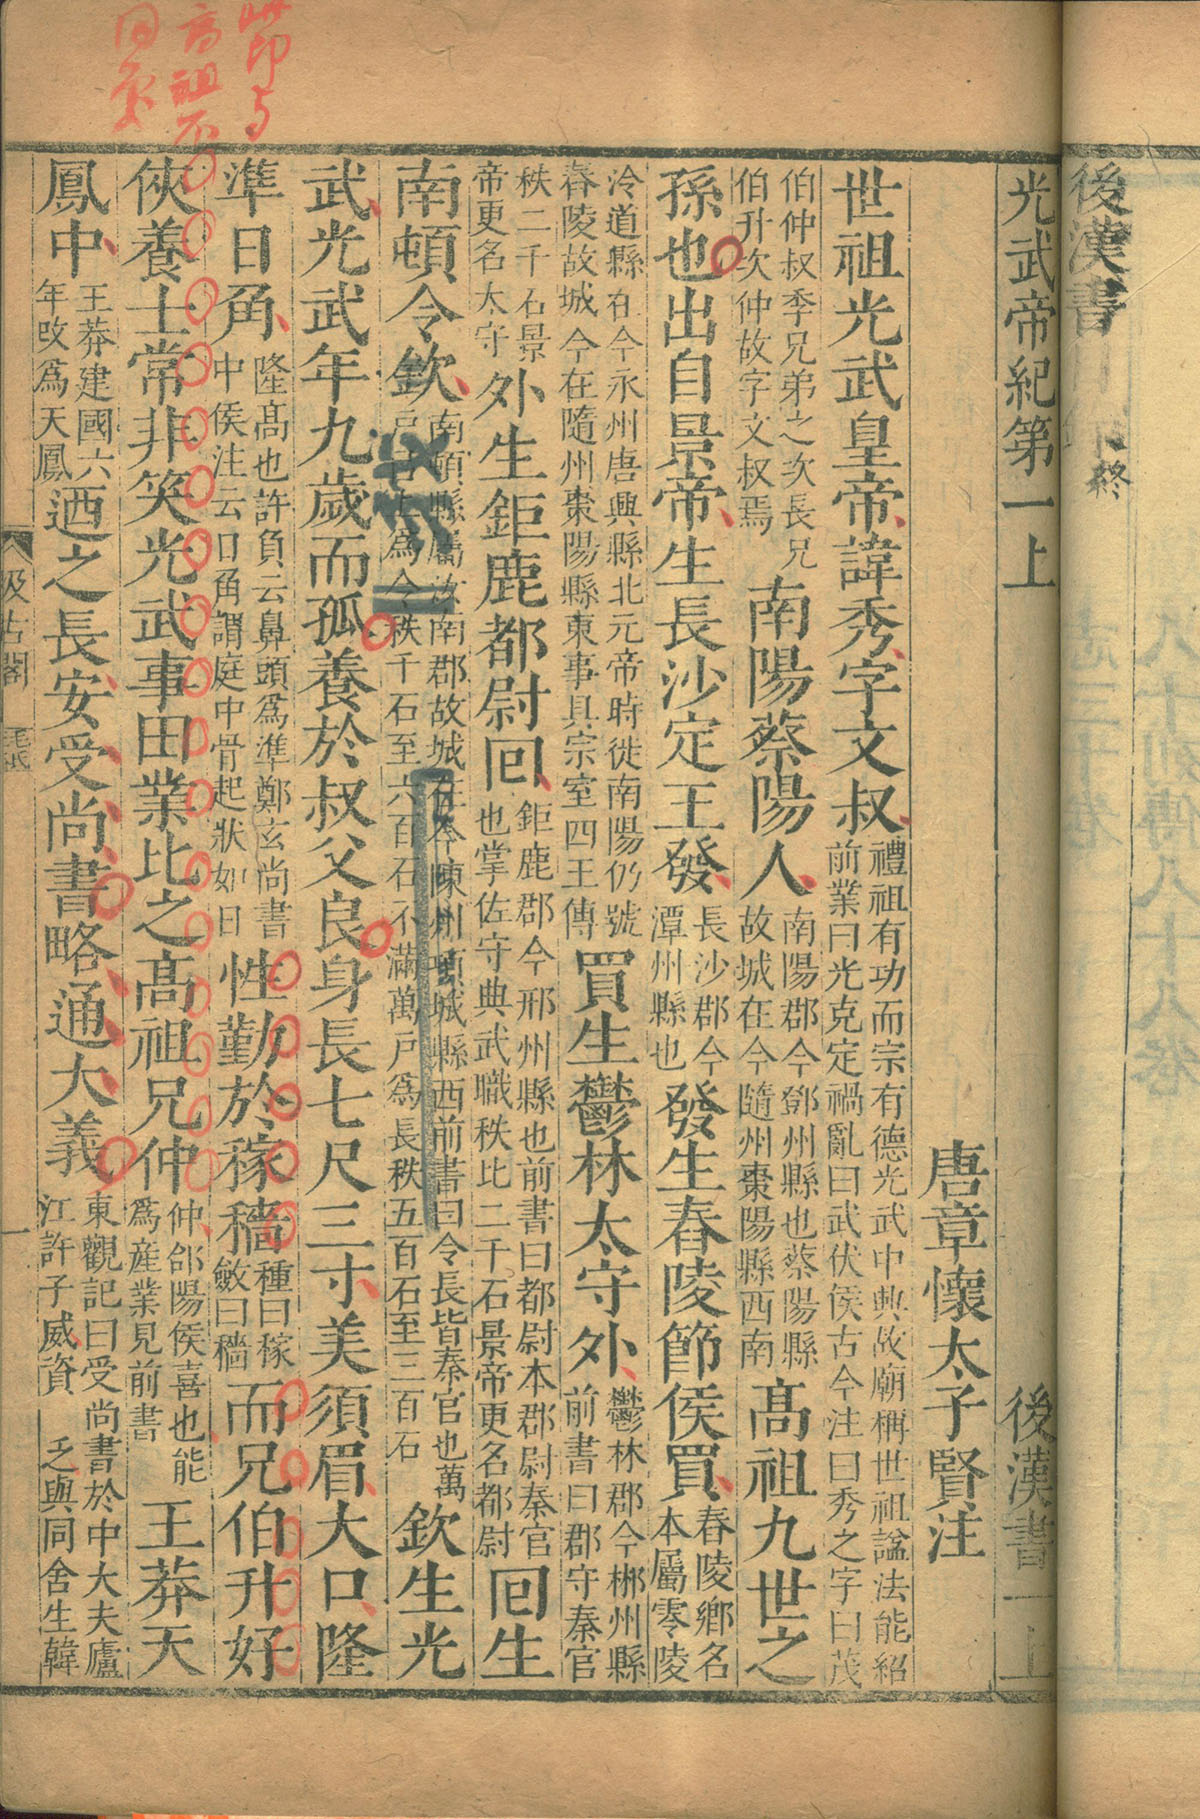 後漢書
終
光武帝紀第一上　後漢書一上
唐章懷太子賢注
世祖光武皇帝諱秀字文叔禮祖有功而宗有德光武中興故廟稱世祖諡法能紹前業曰光克定禍亂曰武伏侯古今注曰秀之字曰茂
伯仲叔季兄弟之次長兄伯升次仲故字文叔焉南陽蔡陽人南陽郡今鄧州縣也蔡陽縣故城在今隨州棗陽縣西南高祖九世之
孫也出自景帝生長沙定王發長沙郡今潭州縣也發生舂陵節侯買舂陵鄉名本屬零陵
泠道縣在今永州唐興縣北元帝時徙南陽仍號舂陵故城今在隨州棗陽縣東事具宗室四王傳買生鬱林太守外鬱林郡今郴州縣前書曰郡守秦官
秩二千石景帝更名太守外生鉅鹿都尉回鉅鹿郡今邢州縣也前書曰都尉本郡尉秦官也掌佐守典武職秩比二千石景帝更名都尉回生
南頓令欽南頓縣屬汝南郡故城在今陳州項城縣西前書曰令長皆秦官也萬戶以上爲令秩千石至六百石不滿萬戶爲長秩五百石至三百石欽生光
武光武年九歲而孤養於叔父良身長七尺三寸美須眉大口隆
準日角隆高也許負云鼻頭爲準鄭玄尚書中侯注云日角謂庭中骨起狀如日性勤於稼穡種曰稼斂曰穡而兄伯升好
俠養士常非笑光武事田業比之高祖兄仲仲郃陽侯喜也能爲產業見前書王莽天
鳳中王莽建國六年改爲天鳳迺之長安受尚書略通大義東觀記曰受尚書於中大夫廬江許子威資乏與同舍生韓
汲古閣
毛氏
一
高祖不
同矣